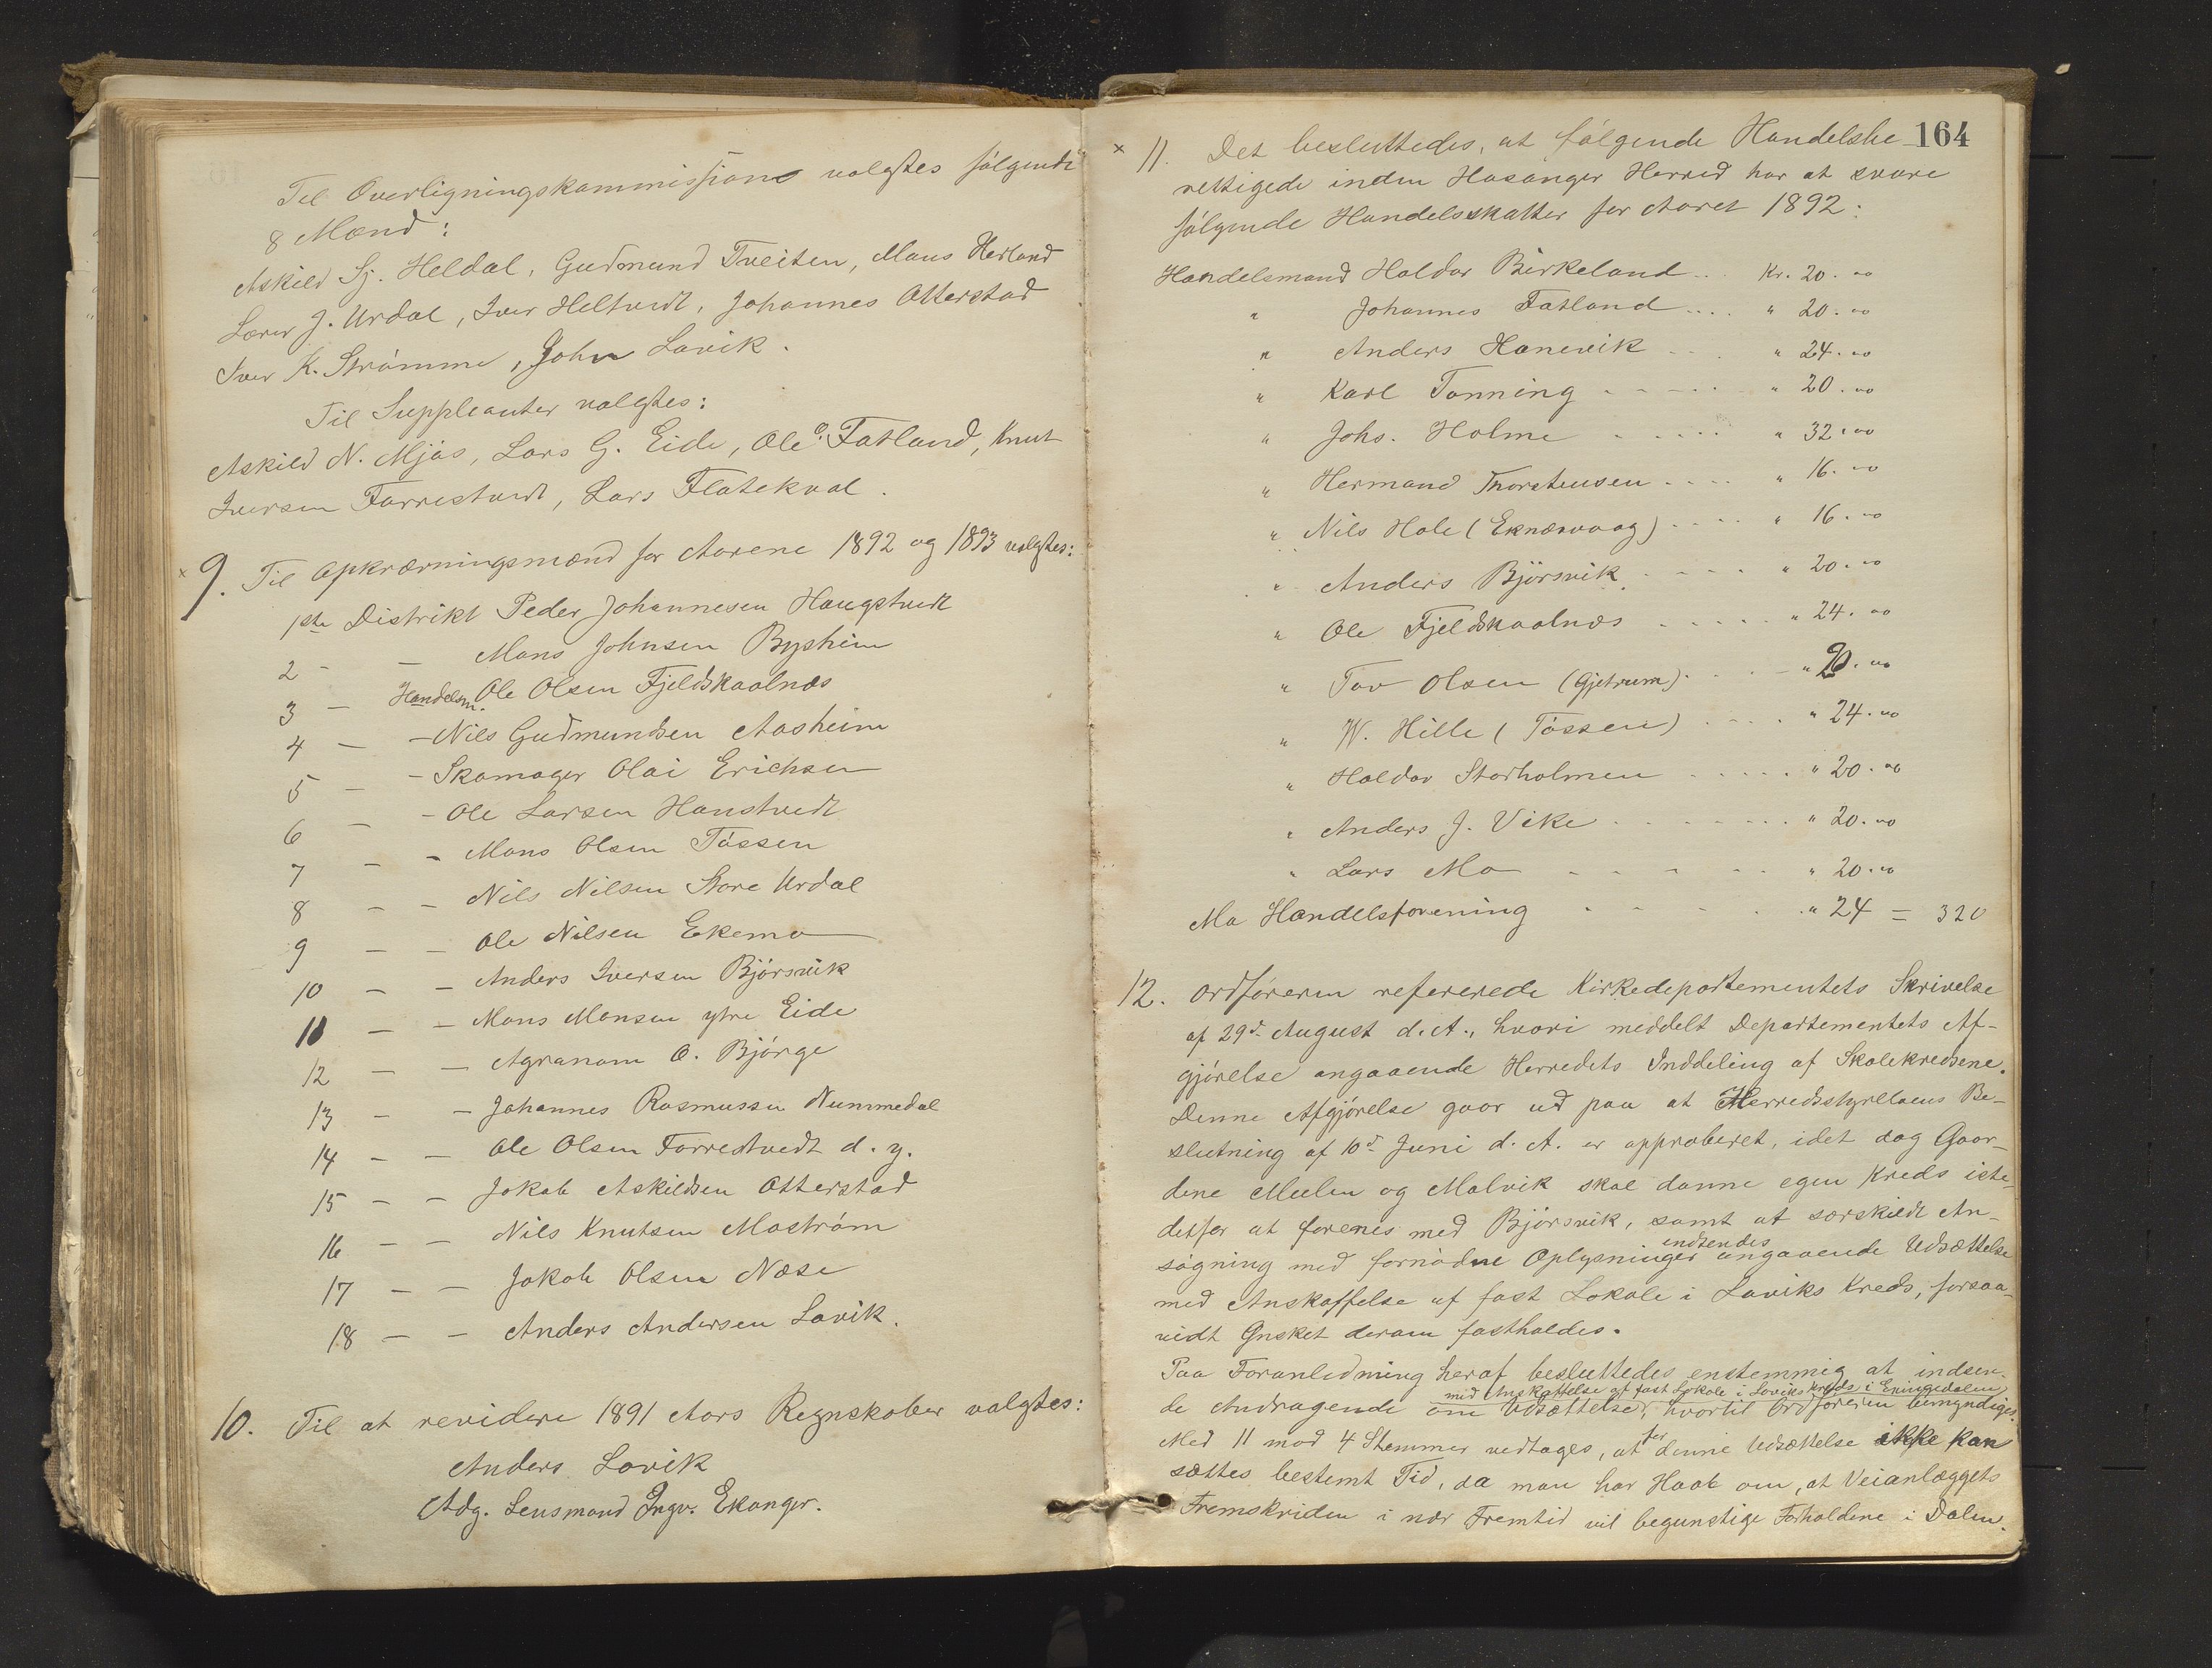 Til Overligningskommissionen valgtes følgende
8 Mænd:
Askild Sj. Heldal, Gudmund Tveiten, Mons Herland
Lærer J. Urdal, Iver Heltvedt, Johannes Otterstad
Iver K. Strømme, John Lavik.
Til Suppleanter valgtes:
Askild N. Mjøs, Lars G. Eide, Ole O. Fatland, Knut
Iversen Farrestvedt, Lars Flatekval.
× 9. Til Opkrævningsmænd for Aarene 1892 og 1893 valgtes:
1ste Distrikt Peder Johannesen Haugstvedt
2 - — Mons Johnsen Bysheim
3 — Handelsm. Ole Olsen Fjeldskaalnæs
4 — - Nils Gudmundsen Aasheim
5 — - Skomager Olai Erichsen
6 — - Ole Larsen Hanstvedt
7 - - Mons Olsen Tøssen
8 - - Nils Nilsen Store Urdal
9 — - Ole Nilsen Ekemo
10 - - Anders Iversen Bjørsvik
11 — - Mons Monsen ytre Eide
12 — - Agronom O. Bjørge
13 - - Johannes Rasmussen Nummedal
14 - - Ole Olsen Farrestvedt d. y.
15 - - Jakob Askildsen Otterstad
16 - - Nils Knutsen Mostrøm
17 - - Jakob Olsen Næse
18 - - Anders Andersen Lavik.
10. Til at revidere 1891 Aars Regnskaber valgtes:
Anders Lavik
Adg. Lensmand Ingv. Ekanger.
164
× 11. Det besluttedes, at følgende Handelsbe-
rettigede inden Hosanger Herred har at svare
følgende Handelsskatter for Aaret 1892:
Handelsmand Haldor Birkeland .. Kr. 20.00
" Johannes Fatland .... " 20.00
" Anders Hanevik ... " 24.00
" Karl Tonning - - - - - " 20.00
" Johs. Holme ..... " 32.00
" Hermand Thorstensen .... " 16.00
" Nils Hole (Eknæsvaag) .... " 16.00
" Anders Bjørsvik. - - - - " 20.00
" Ole Fjeldskaalnæs ..... " 24.00
" Tov Olsen (Gjetrum). . . . " 20.00
" W. Hille (Tøssen) .... " 24.00
" Haldor Storholmen ..... " 20.00
" Anders J. Vike ....... " 20.00
" Lars Mo - - - - - " 20.00
Mo Handelsforening - - - - . " 24 = 320
12. Ordføreren refererede Kirkedepartementets Skrivelse
af 29d August d. A., hvori meddelt Departementets Af-
gjørelse angaaende Herredets Inddeling af Skolekredsene.
Denne Afgjørelse gaar ud paa at Herredsstyrelsens Be-
slutning af 10d Juni d. A. er approberet, idet dog Gaar-
dene Meelen og Molvik skal danne egen Kreds iste-
detfor at forenes med Bjørsvik, samt at særskildt An-
søgning med fornødne Oplysninger indsendes angaaende Udsættelse
med Anskaffelse af fast Lokale i Laviks Kreds, forsaa-
vidt Ønsket derom fastholdes.
Paa Foranledning heraf besluttedes enstemmig at indsen-
de Andragende om Udsættelse med Anskaffelse af fast Lokale i Laviks Kreds i Eksingedalen, hvortil Ordføreren bemyndiges.
Med 11 mod 4 Stemmer vedtages, at for denne Udsættelse ikke kan
sættes bestemt Tid, da man har Haab om, at Veianlæggets
Fremskriden i nær Fremtid vil begunstige Forholdene i Dalen.